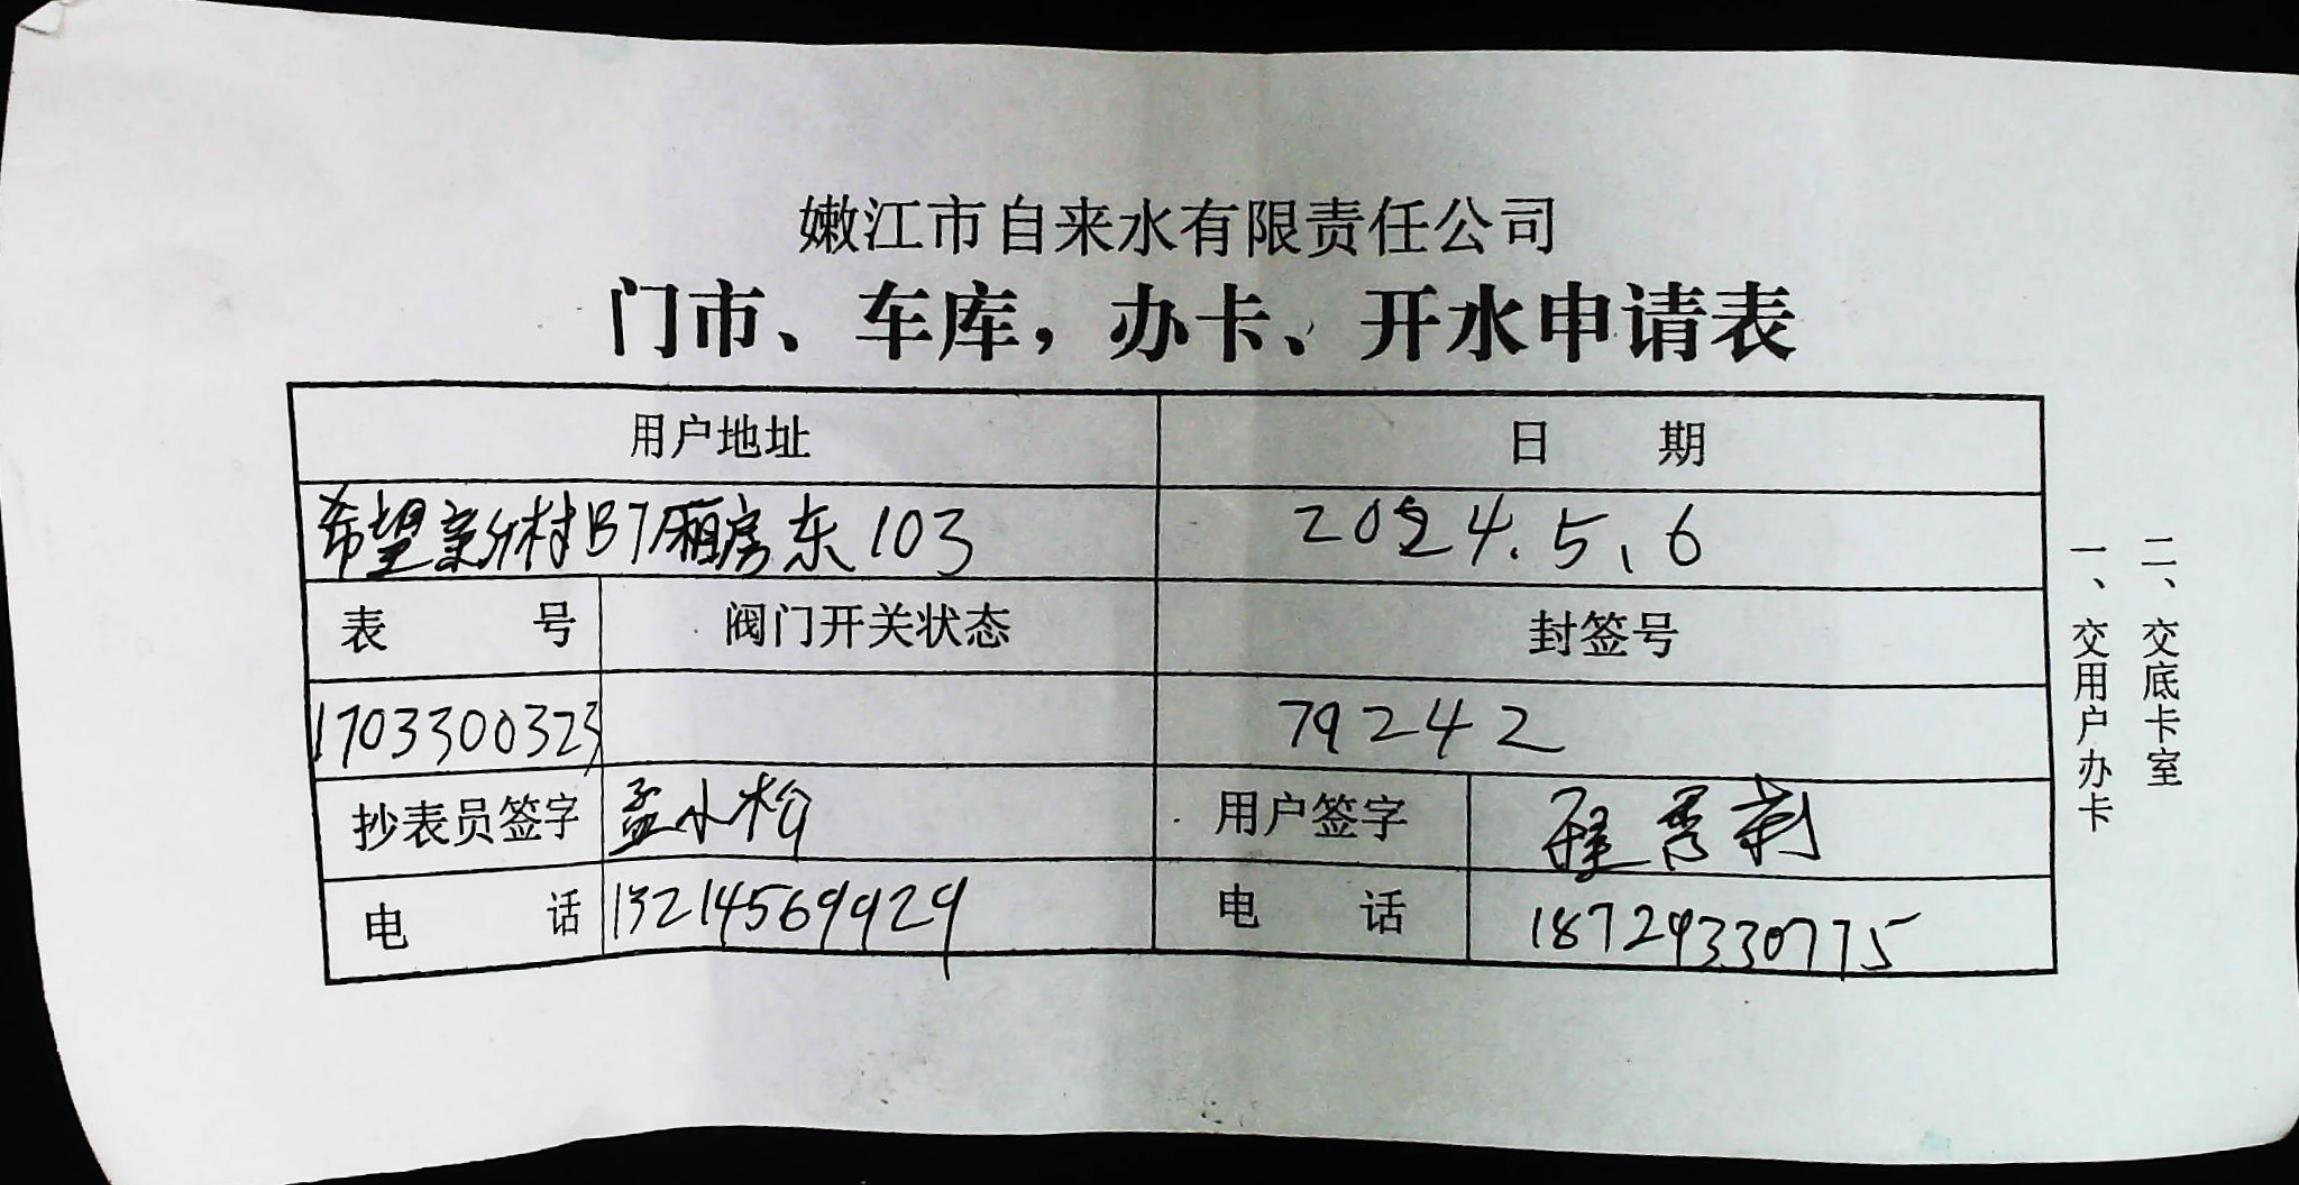 嫩江市自来水有限责任公司
门市、车库，办卡、开水申请表
用户地址 日 期
希望新村B7厢房东103 2024.5、6
表 号 阀门开关状态 封签号
1703300323 79242
抄表员签字 孟小粉 用户签字 程秀菊
电 话 13214569929 电 话 18729330775
一、交用户办卡
二、交底卡室